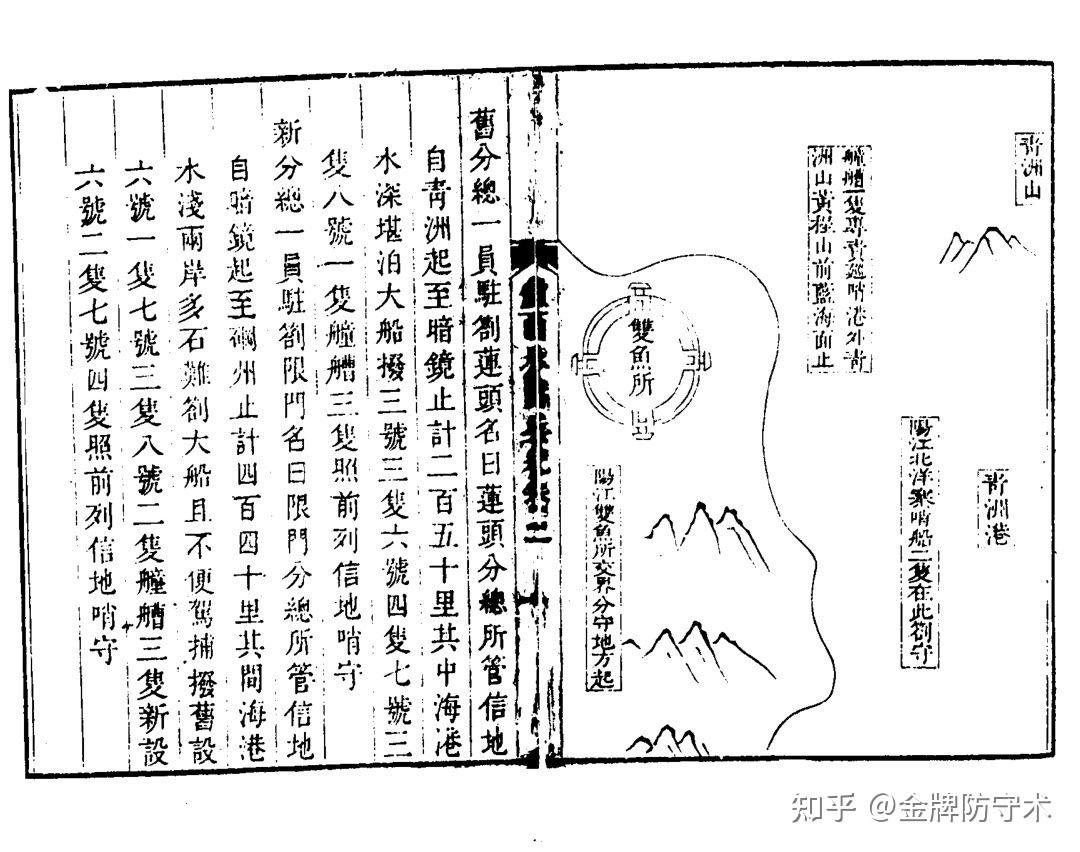 青洲山
艚一隻專責巡哨港外青
洲山黃程山前藍海面止
青洲港
陽江北洋聚哨船二隻在此劄守
雙魚所
陽江雙魚所交界分守地方起
舊分總一員駐劄蓮頭名曰蓮頭分總所管信地
自青洲起至暗鏡止計二百五十里其中海港
水深堪泊大船撥三號三隻六號四隻七號三
隻八號一隻艟艚三隻照前列信地哨守
新分總一員駐劄限門名曰限門分總所管信地
自暗鏡起至硇州止計四百四十里其間海港
水淺兩岸多石難劄大船且不便駕捕撥舊設
六號一隻七號三隻八號二隻艟艚三隻新設
六號二隻七號四隻照前列信地哨守
知乎 @金牌防守术